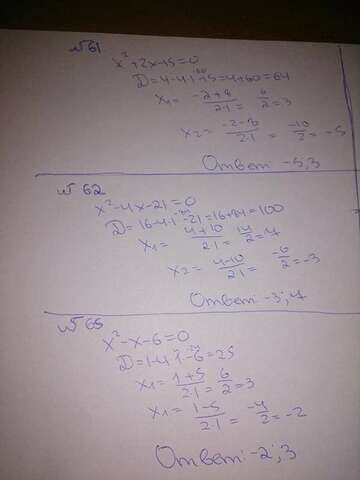 №61
x²+2x-15=0
D=4-4·1·-15=4+60=64
x₁= -2+8/2·1 = 6/2=3
x₂= -2-8/2·1 = -10/2 = -5
Ответ: -5;3
№62
x²-4x-21=0
D=16-4·1·-21=16+84=100
x₁= 4+10/2·1 = 14/2=7
x₂= 4-10/2·1 = -6/2=-3
Ответ: -3; 7
№65
x²-x-6=0
D=1-4·1·-6=25
x₁= 1+5/2·1 = 6/2=3
x₁= 1-5/2·1 = -4/2=-2
Ответ: -2; 3